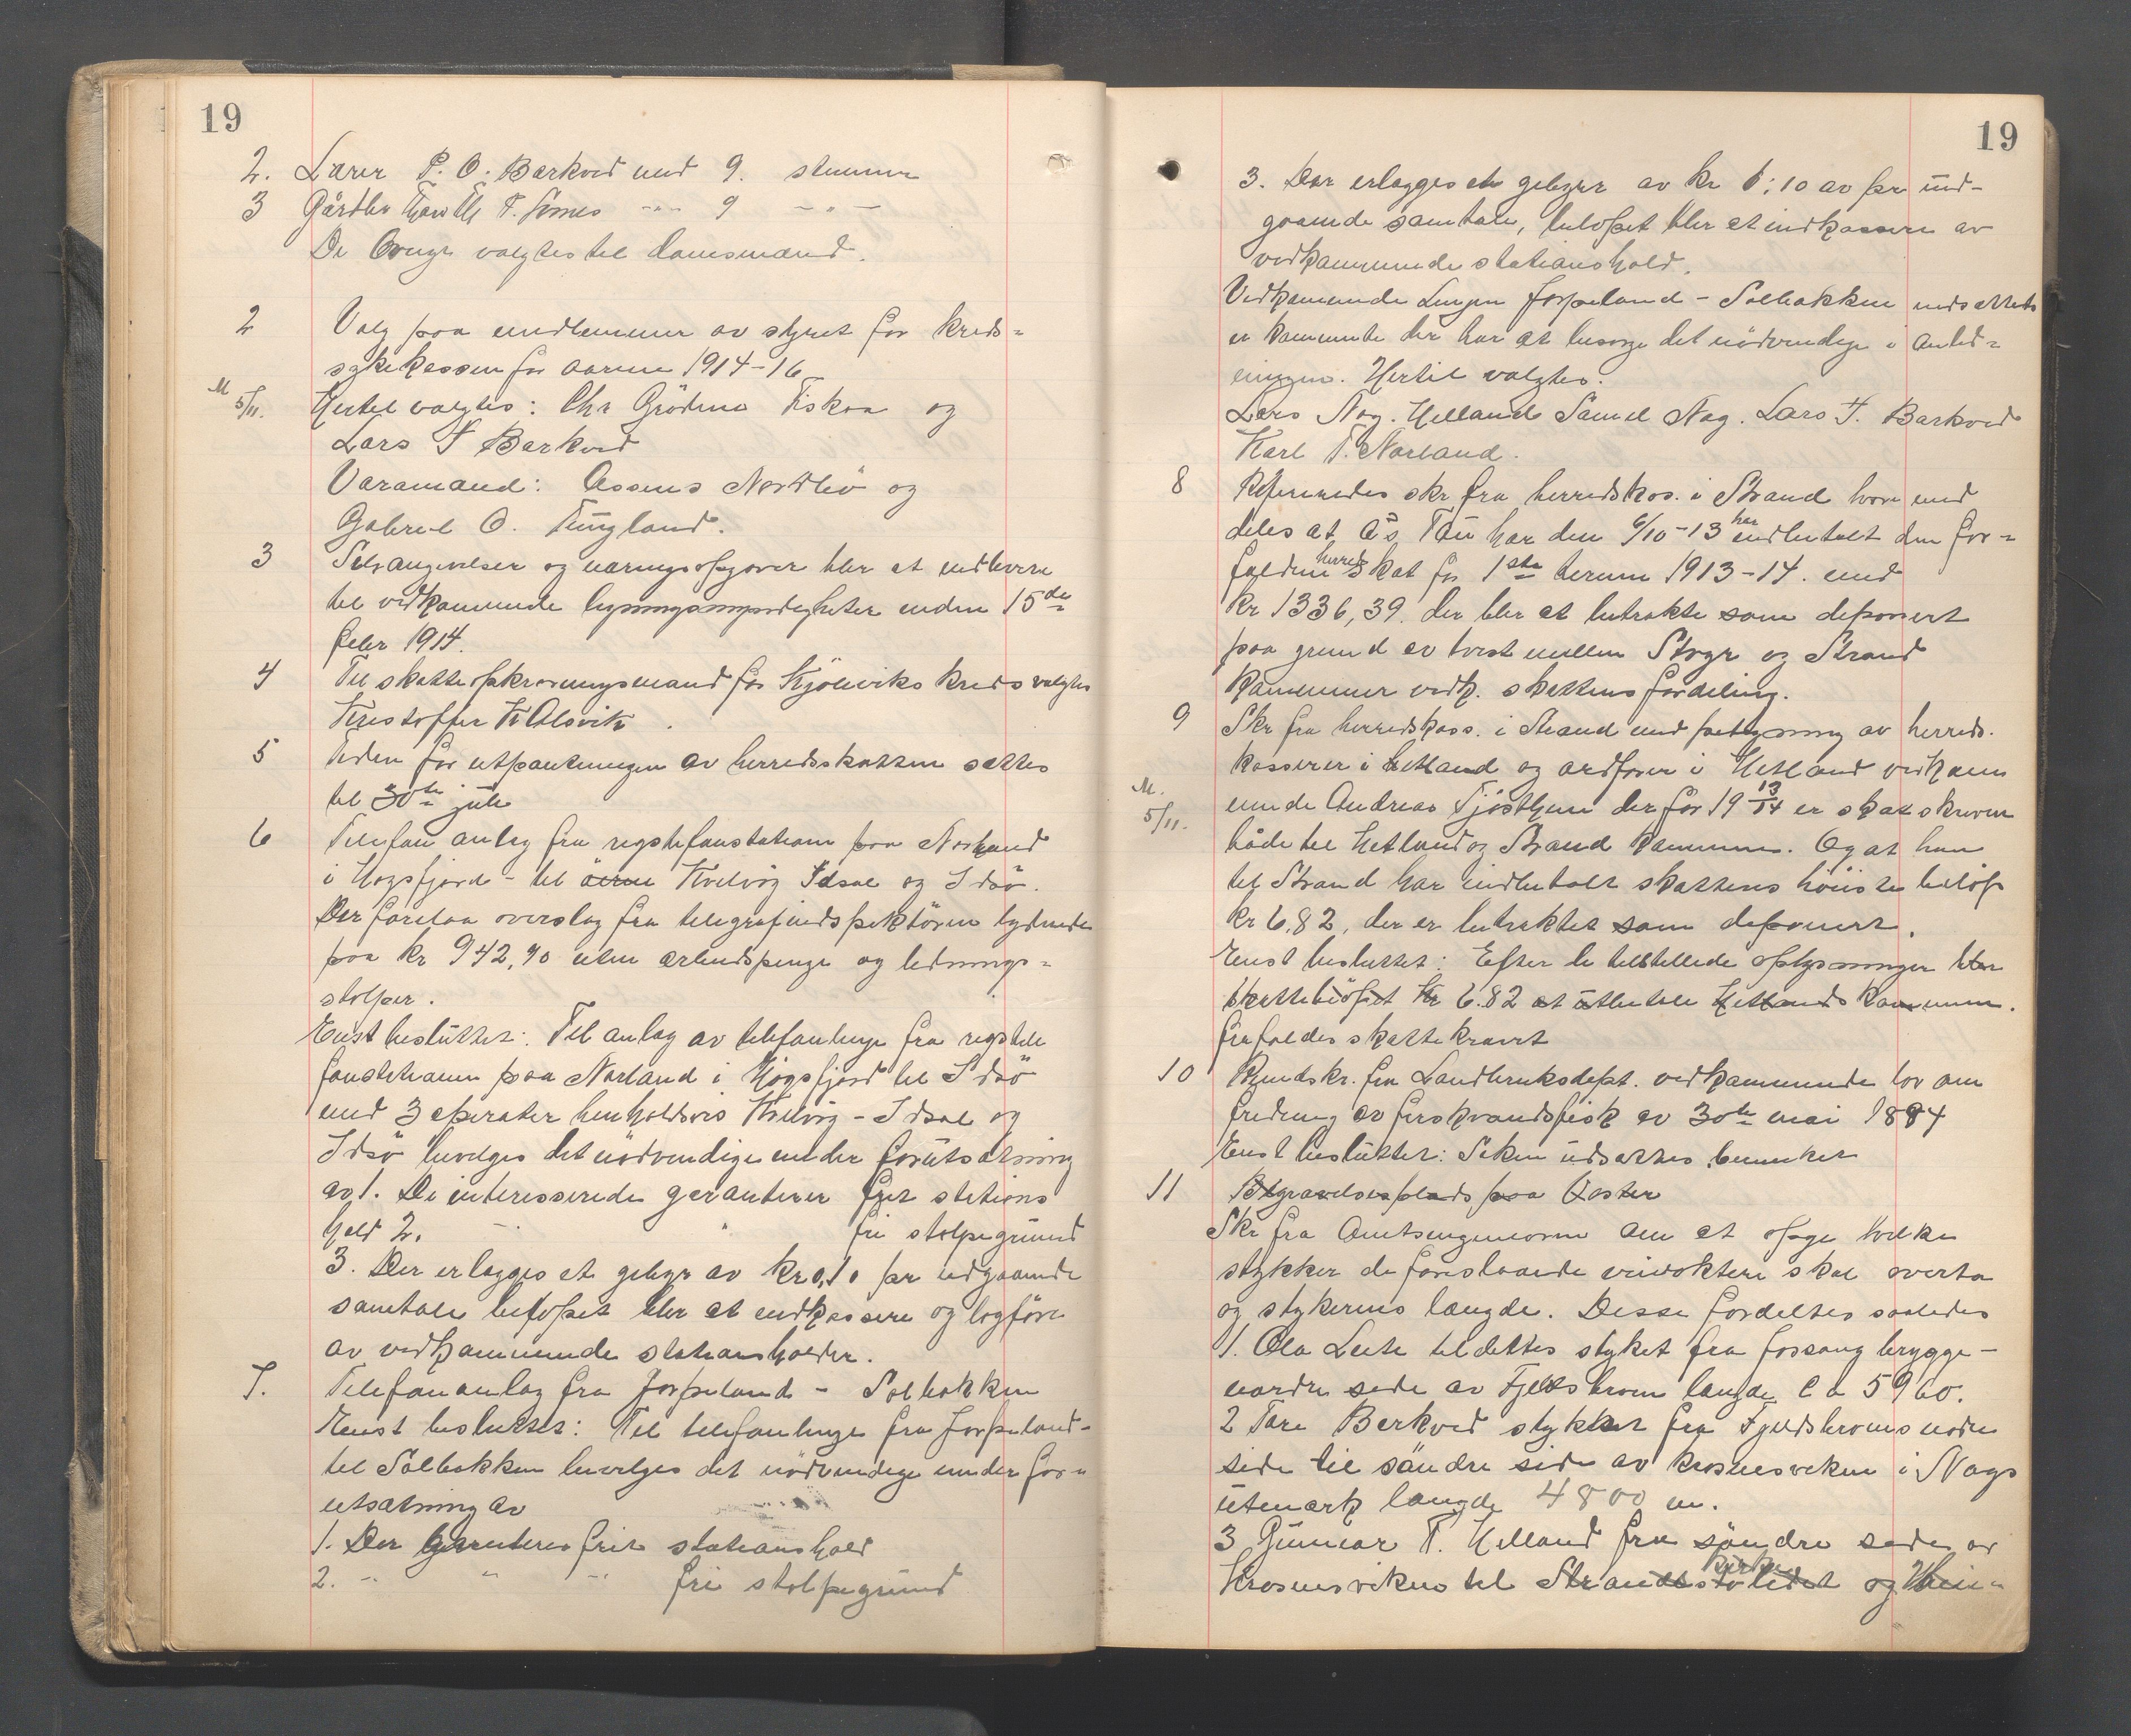 19
2. Lærer P. O. Barkved med 9. stemmer
3 Gårdbr T. Fosnes -"- 9 -"-
De Övrige valgtes til domsmænd.
2 Valg paa medlemmer av styret for kreds-
sykekassen for aarene 1914-16
M 5/11. Hertil valgtes: Chr Grödeno Fiskaa og
Lars T Barkved
Varamænd: Assens Nordbö og
Gabriel O. Tungland.
3 Selvangivelser og næringsopgaver blir at indlevere
til vedkommende ligningsmyndigheter inden 15de
febr 1914.
4 Til skatteopkrævningsmand for Kjöleviks kreds valgtes
Kristoffer K Alsvik.
5 Tiden for utpantningen av herredsskatten sættes
til 30te juli
6 Telefon anlæg fra rigstelefonstation paa Norland
i Högsfjord - til Kvelvig Idsal og Idsö.
Der forelaa overslag fra telegrafindspektören lydende
paa kr 942,90 uten arbeidspenge og lednings-
stolper.
Enst besluttet: Til anlæg av telefonlinje fra rigstele
fonstationen paa Norland i Högsfjord til Idsö
med 3 aperater henholdsvis Kvelvig - Idsal og
Idsö bevilges det nödvendige under forutsætning
av 1. De interesserede garanterer frit stations
hold 2. - " - fri stolpegrund
3. Der erlægges et gebyr av kr 0,10 pr utgaaende
samtale beløpet blir at indkassere og bogföre
av vedkommende stationsholder.
7. Telefonanlæg fra Jørpeland - Solbakken
Enst besluttet: Til telefonlinje fra Jørpeland-
til Solbakken bevilges det nödvendige under for-
utsætning av
1. Der garanteres frit stationshold
2. -" " -" fri stolpegrund
19
3. Der erlægges et gebyr av kr 0:10 av pr ud-
gaaende samtale, beløpet blir at indkassere av
vedkommende stationshold.
Vedkommende Linjen Jørpeland - Solbakken nedsættes
en kommite der har at besørge det nödvendige i anled-
ningen. Hertil valgtes:
Lars Nag. Helland Samel Nag. Lars T. Barkved
Karl T. Norland.
8 Refereredes skr fra herredskas. i Strand hvori med
deles at A/s Tau har den 6/10-13 her indbetalt den for-
faldne herredsskat for 1ste termin 1913-14. med
Kr 1336,39. der blir at betrakte som deponert
paa grund av tvist mellem Stvgr og Strand
kommuner vedk. skattens fordeling.
9 Skr fra herredskass. i Strand med paategning av herreds-
kasserer i Hetland og ordfører i Hetland vedkom
M. 5/11. mende Andreas Tjöstheim der for 19 13/14 er skatskreven
både til Hetland og Strand kommune. Og at han
til Strand har indbetalt skattens höieste beløp
kr 6.82, der er betraktet som deponert.
Enst besluttet: Efter de tilstillede oplysninger blir
skattebeløpet Kr 6.82 at utbetale Hetlands kommune.
frafaldes skattekravet
10 Rundskr. fra Landbruksdept. vedkommende lov om
fredning av ferskvandsfisk av 30te mai 1884
Enst besluttet: Saken utsættes.
11 Begravelsesplads paa Vaster
Skr fra Amtsingeniøren om at opgi hvilke
stykker de foreslaaede veivoktere skal overta
og stykernes længde. Desse fordeltes saaledes
1. Ola Leite tildeltes styket fra Fossang brygge-
nordre side av Fjeldsbroen længde Ca 5960.
2 Tore Barkved stykket fra Fjeldsbroens nordre
side til söndre side av krosnesviken i Nags
utmark længde 4800 m.
3 Gunnar T. Helland fra söndre side av
Krosnesvikens til Strands kirke og Hei-